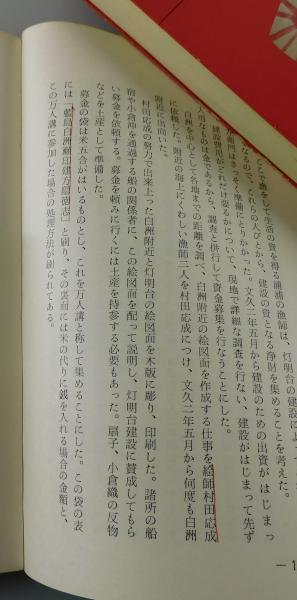 ここで漁をして生活の資を得る浦浦の漁師は、灯明台の建設によ
なるもので、これらの人びとから、建設の資となる浄財を集めることを考えた。
衛門はさっそく準備にとりかかった。文久二年五月から建設のための出資がはじまっ
建設費用がどれだけ要るかについて、現地で詳細な調査を行ない、建設がはじまって先ず
入用なものは金であるから、調査と併行して資金募集を行なうことにした。
白洲を中心として各地までの距離を調べ、白洲附近の絵図面を作成する仕事を絵師村田応成
に依頼した。附近の海上にくわしい漁師二人を村田応成につけ、文久二年五月から何度も白洲
附近に出向いた。
村田応成の努力で出来上った白洲附近と灯明台の絵図面を木版に彫り、印刷した。諸所の船
宿や小倉沖を通過する船の関係者に、この絵図面を配って説明し、灯明台建設に賛成してもら
い募金を依頼する。募金を頼みに行くには土産を持参する必要もあった。扇子、小倉織の反物
などを土産として準備した。
募金の袋は米五合がはいるものとし、これを万人講と称して集めることにした。この袋の表
には「藍島白洲瀬印建方厨徳志」と刷り、その裏面には米の代りに銭を入れる場合の金額と、
この万人講に参加した場合の処理方法が刷られてある。